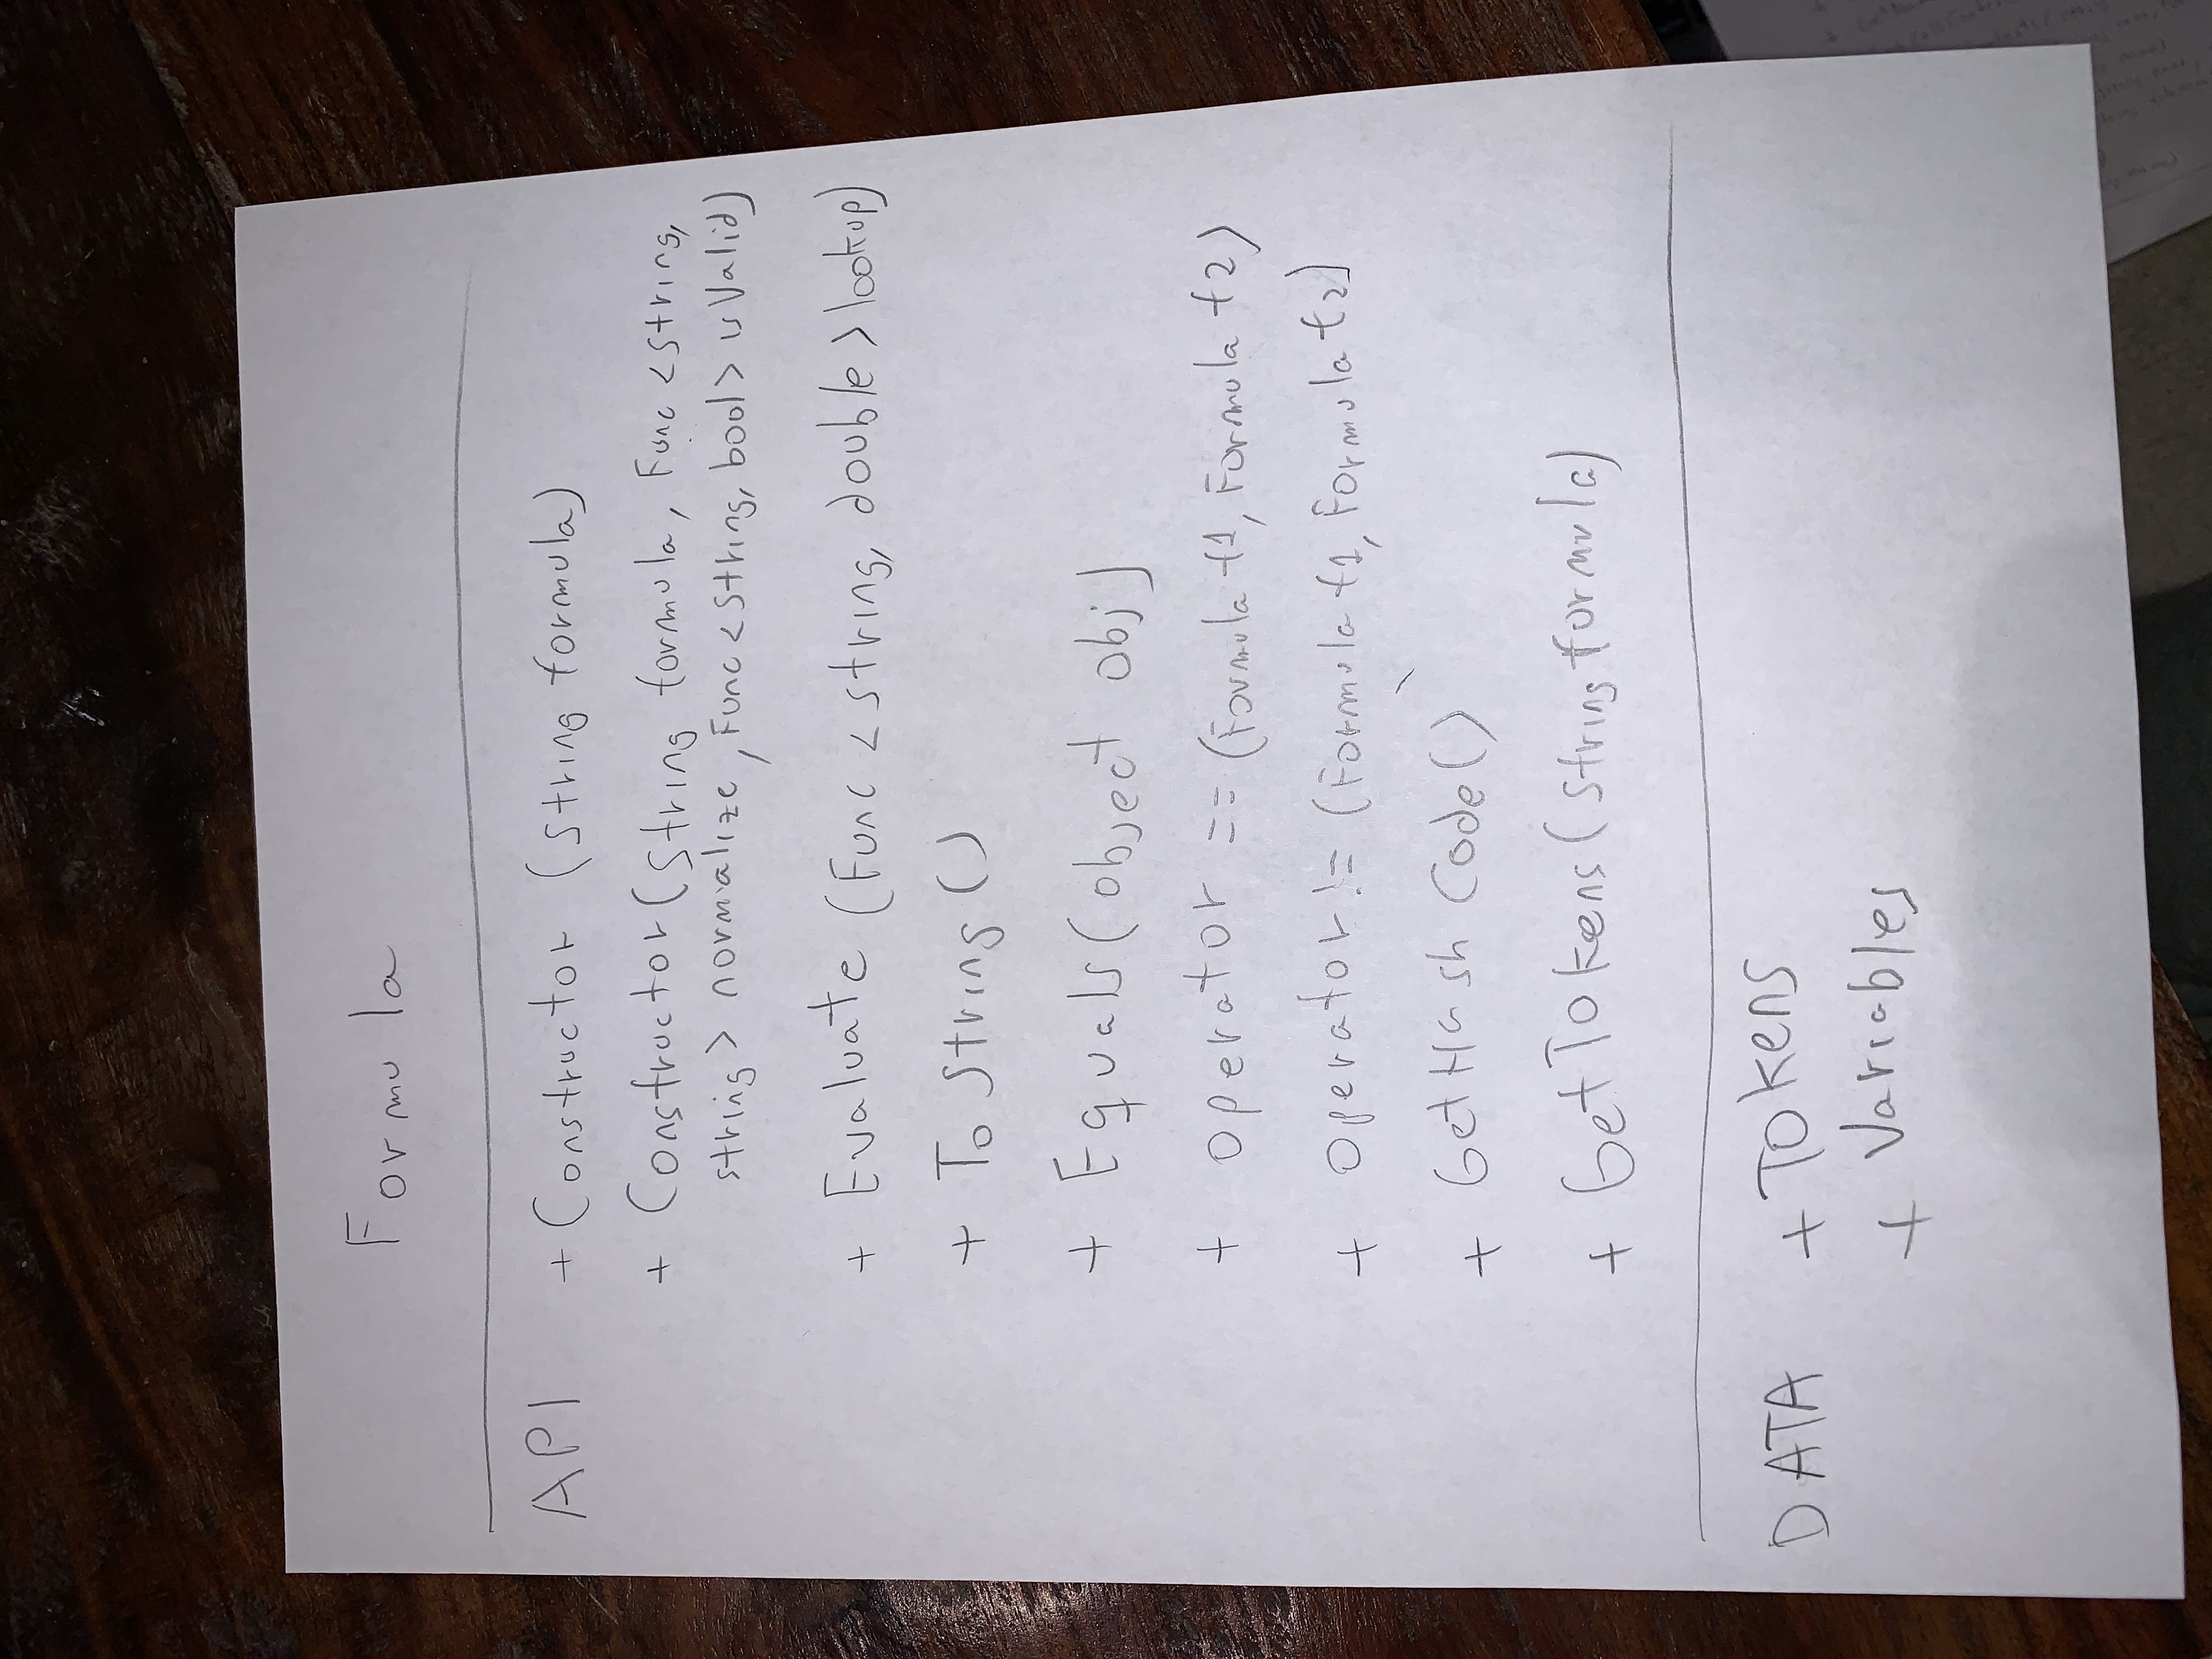 Formula
API + Constructor (string formula)
+ Constructor (string formula, Func <string,
string> normalize, Func <string, bool> isValid)
+ Evaluate (Func <string, double> lookup)
+ ToString ()
+ Equals (object obj)
+ operator == (Formula f1, Formula f2)
+ operator != (Formula f1, Formula f2)
+ GetHashCode ()
+ GetTokens (string formula)
DATA + Tokens
+ Variables